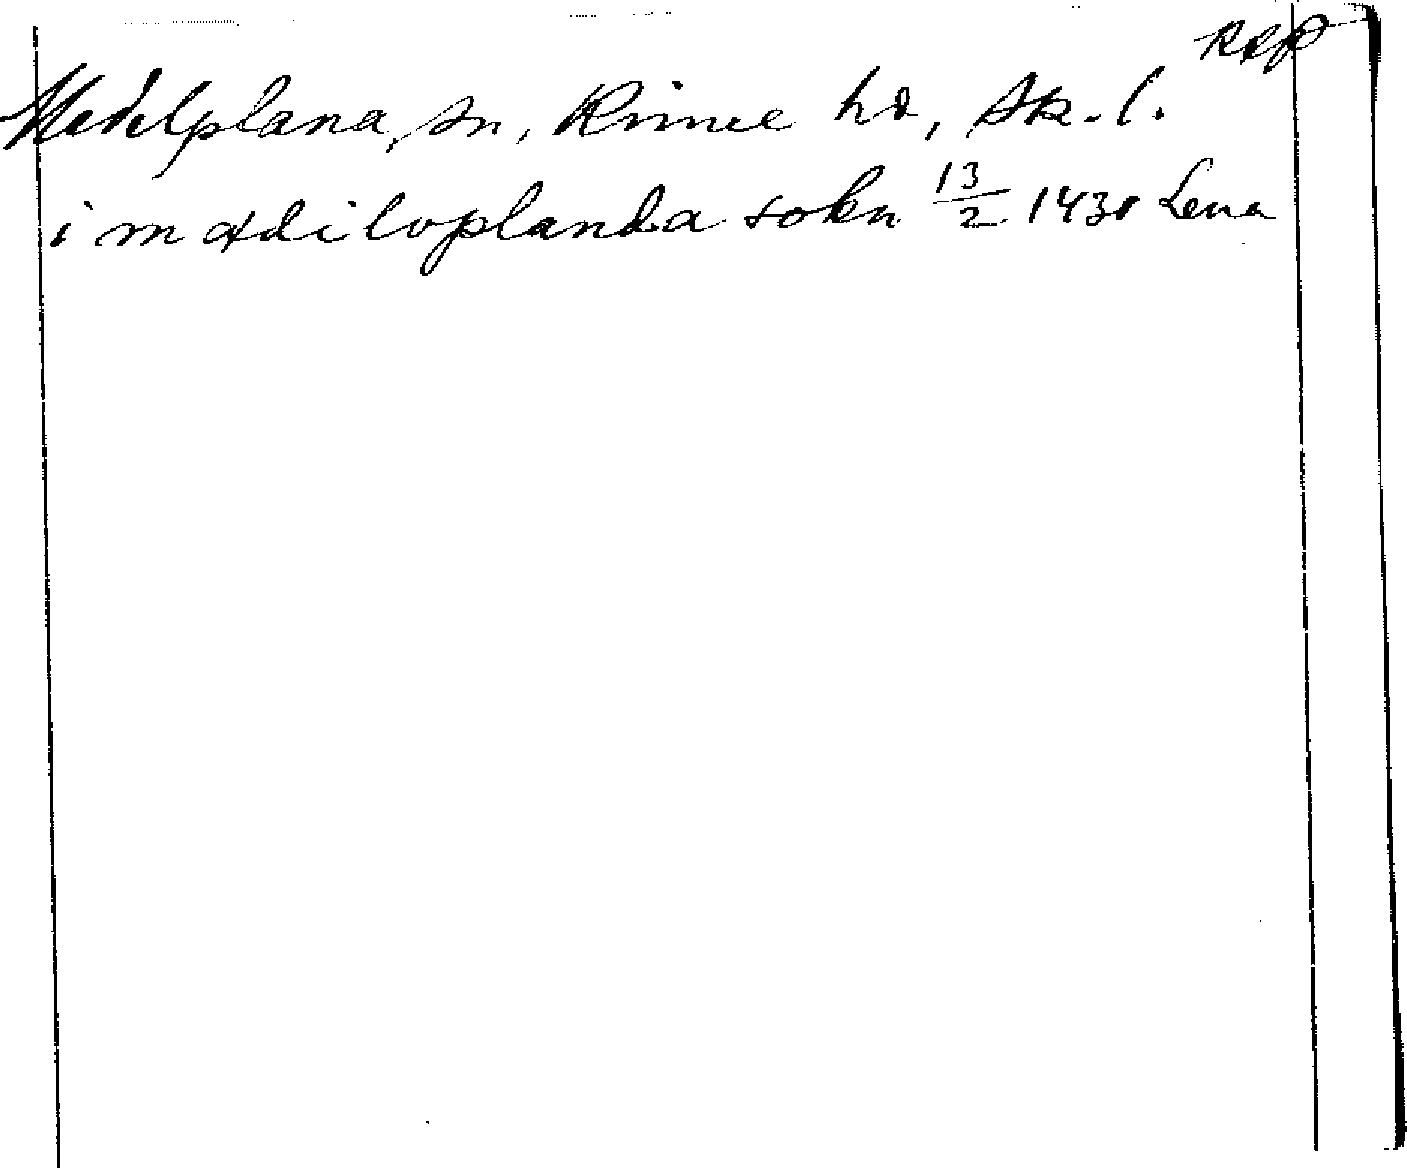 RAP
Medelplana, sn, Kinne hd, Sk. l.
i mædiloplanda sokn 13/2 1430 Lena